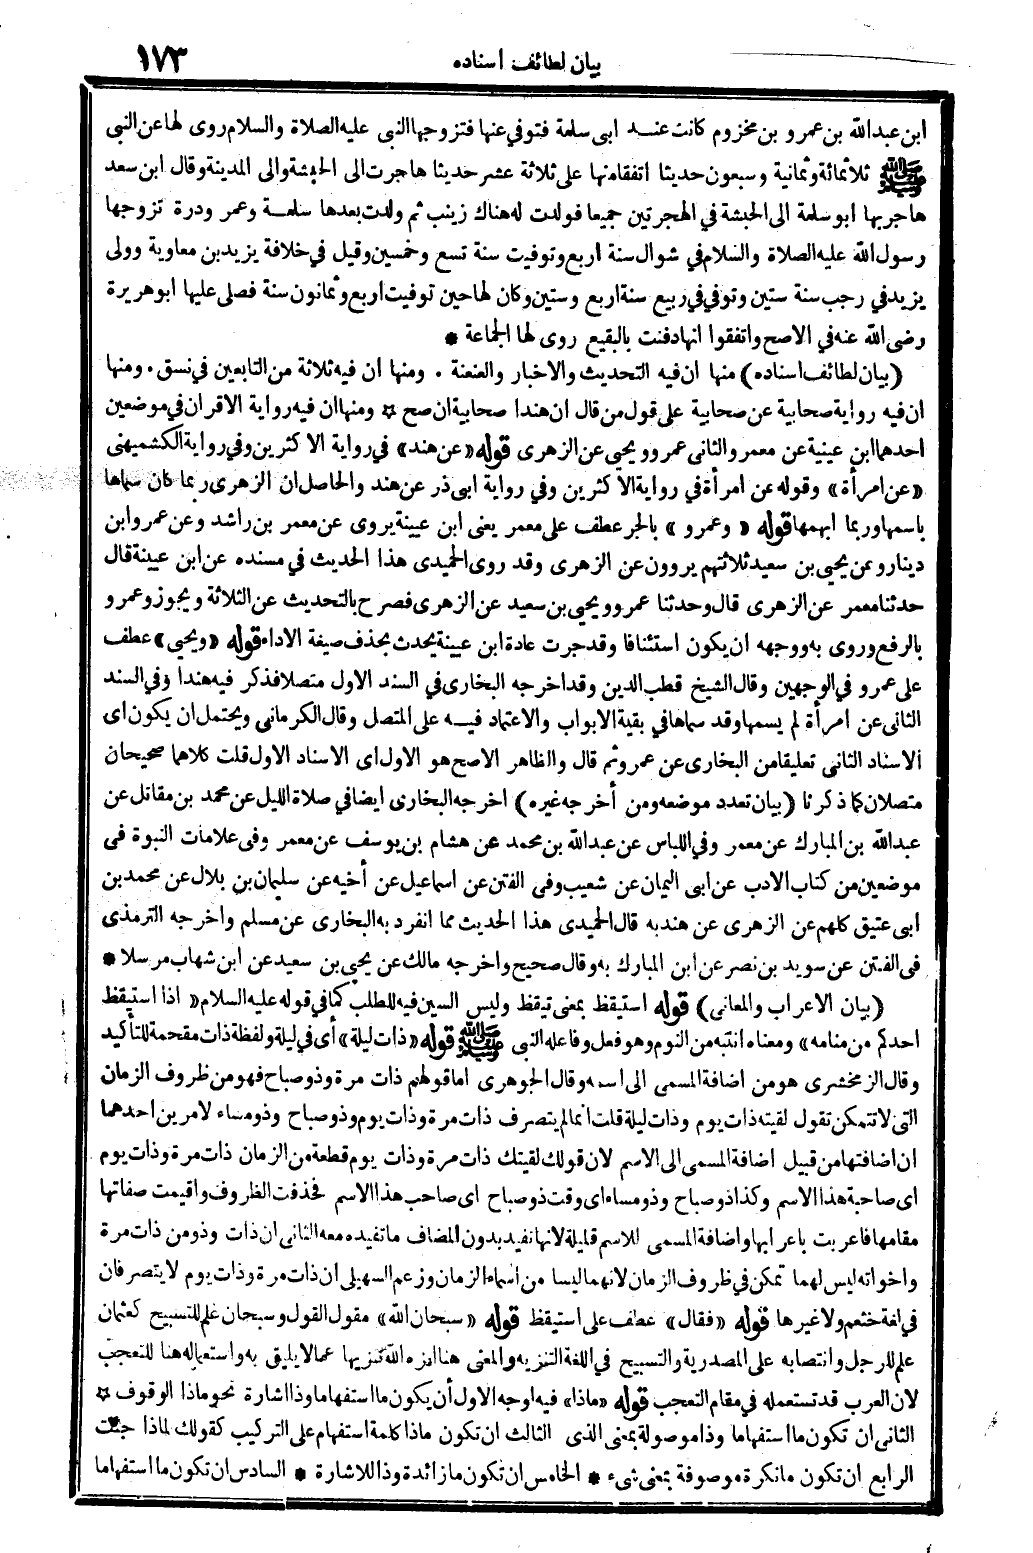 بيان لطائف اسناده ١٧٣
ابن عبدالله بن عمرو بن مخزوم كانت عند ابى سلمة فتوفي عنها فتزوجها النبى عليه الصلاة والسلام روى لها عن النبى
ﷺ ثلاثمائة وثمانية وسبعون حديثا اتفقا منها على ثلاثة عشر حديثا هاجرت الى الحبشة والى المدينة وقال ابن سعد
هاجر بها ابو سلمة الى الحبشة في الهجرتين جميعا فولدت له هناك زينب ثم ولدت بعدها سلمة وعمر ودرة تزوجها
رسول الله عليه الصلاة والسلام في شوال سنة اربع وتوفيت سنة تسع وخمسين وقيل في خلافة يزيد بن معاوية وولى
يزيد في رجب سنة ستين وتوفي في ربيع سنة اربع وستين وكان لها حين توفيت اربع وثمانون سنة فصلى عليها ابو هريرة
رضى الله عنه في الاصح واتفقوا انها دفنت بالبقيع روى لها الجماعة *
(بيان لطائف اسناده) منها ان فيه التحديث والاخبار والعنعنة . ومنها ان فيه ثلاثة من التابعين في نسق . ومنها
ان فيه رواية صحابية عن صحابية على قول من قال ان هندا صحابية ان صح * ومنها ان فيه رواية الاقران في موضعين
احدهما ابن عيينة عن معمر والثانى عمرو ويحيى عن الزهرى قوله «عن هند» في رواية الاكثرين وفي رواية الكشميهنى
«عن امرأة» وقوله عن امرأة في رواية الاكثرين وفي رواية ابى ذر عن هند والحاصل ان الزهرى ربما كان سماها
باسمها وربما ابهمها قوله « وعمرو » بالجر عطف على معمر يعنى ابن عيينة يروى عن معمر بن راشد وعن عمرو ابن
دينار وعن يحيى بن سعيد ثلاثتهم يروون عن الزهرى وقد روى الحميدى هذا الحديث في مسنده عن ابن عيينة قال
حدثنا معمر عن الزهرى قال وحدثنا عمرو ويحيى بن سعيد عن الزهرى فصرح بالتحديث عن الثلاثة ويجوز وعمرو
بالرفع وروى به ووجهه ان يكون استئنافا وقد جرت عادة ابن عيينة يحدث بحذف صيغة الاداء قوله «ويحيى» عطف
على عمرو في الوجهين وقال الشيخ قطب الدين وقد اخرجه البخارى في السند الاول متصلا فذكر فيه هندا وفي السند
الثانى عن امرأة لم يسمها وقد سماها في بقية الابواب والاعتماد فيه على المتصل وقال الكرمانى ويحتمل ان يكون اى
الاسناد الثانى تعليقا من البخارى عن عمرو ثم قال والظاهر الاصح هو الاول اى الاسناد الاول قلت كلاهما صحيحان
متصلان كما ذكرنا (بيان تعدد موضعه ومن أخرجه غيره) اخرجه البخارى ايضا في صلاة الليل عن محمد بن مقاتل عن
عبدالله بن المبارك عن معمر وفي اللباس عن عبدالله بن محمد عن هشام بن يوسف عن معمر وفي علامات النبوة في
موضعين من كتاب الادب عن ابى اليمان عن شعيب وفي الفتن عن اسماعيل عن أخيه عن سليمان بن بلال عن محمد بن
ابى عتيق كلهم عن الزهرى عن هند به قال الحميدى هذا الحديث مما انفرد به البخارى عن مسلم واخرجه الترمذى
فى الفتن عن سويد بن نصر عن ابن المبارك به وقال صحيح واخرجه مالك عن يحيى بن سعيد عن ابن شهاب مرسلا *
(بيان الاعراب والمعانى) قوله استيقظ بمعنى تيقظ وليس السين فيه للطلب كما في قوله عليه السلام « اذا استيقظ
احدكم من منامه» ومعناه انتبه من النوم وهو فعل وفاعله النبى ﷺ قوله «ذات ليلة» أى في ليلة ولفظة ذات مقحمة للتأكيد
وقال الزمخشرى هو من اضافة المسمى الى اسمه وقال الجوهرى اما قولهم ذات مرة وذو صباح فهو من ظروف الزمان
التى لا تتمكن تقول لقيته ذات يوم وذات ليلة قلت انما لم يتصرف ذات مرة وذات يوم وذو صباح وذو مساء لامرين احدهما
ان اضافتها من قبيل اضافة المسمى الى الاسم لان قولك لقيتك ذات مرة وذات يوم قطعة من الزمان ذات مرة وذات يوم
اى صاحبة هذا الاسم وكذا ذو صباح وذو مساء اى وقت ذو صباح اى صاحب هذا الاسم فحذفت الظروف واقيمت صفاتها
مقامها فاعربت باعرابها واضافة المسمى للاسم قليلة لانها تفيد بدون المضاف ما تفيده معه الثانى ان ذات وذو من ذات مرة
واخواته ليس لهما تمكن في ظروف الزمان لانهما ليسا من اسماء الزمان وزعم السهيلى ان ذات مرة وذات يوم لا يتصرفان
في لغة خثعم ولا غيرها قوله «فقال» عطف على استيقظ قوله «سبحان الله» مقول القول وسبحان علم للتسبيح كعثمان
علم للرجل وانتصابه على المصدرية والتسبيح في اللغة التنزيه والمعنى هنا انزه الله تنزيها عما لا يليق به واستعماله هنا للتعجب
لان العرب قد تستعمله في مقام التعجب قوله «ماذا» فيه اوجه الاول أن يكون ما استفهاما وذا اشارة نحو ماذا الوقوف *
الثانى ان تكون ما استفهاما وذا موصولة بمعنى الذى الثالث ان تكون ماذا كلمة استفهام على التركيب كقولك لماذا جئت
الرابع ان تكون ما نكرة موصوفة بمعنى شىء * الخامس ان تكون ما زائدة وذا للاشارة * السادس ان تكون ما استفهاما